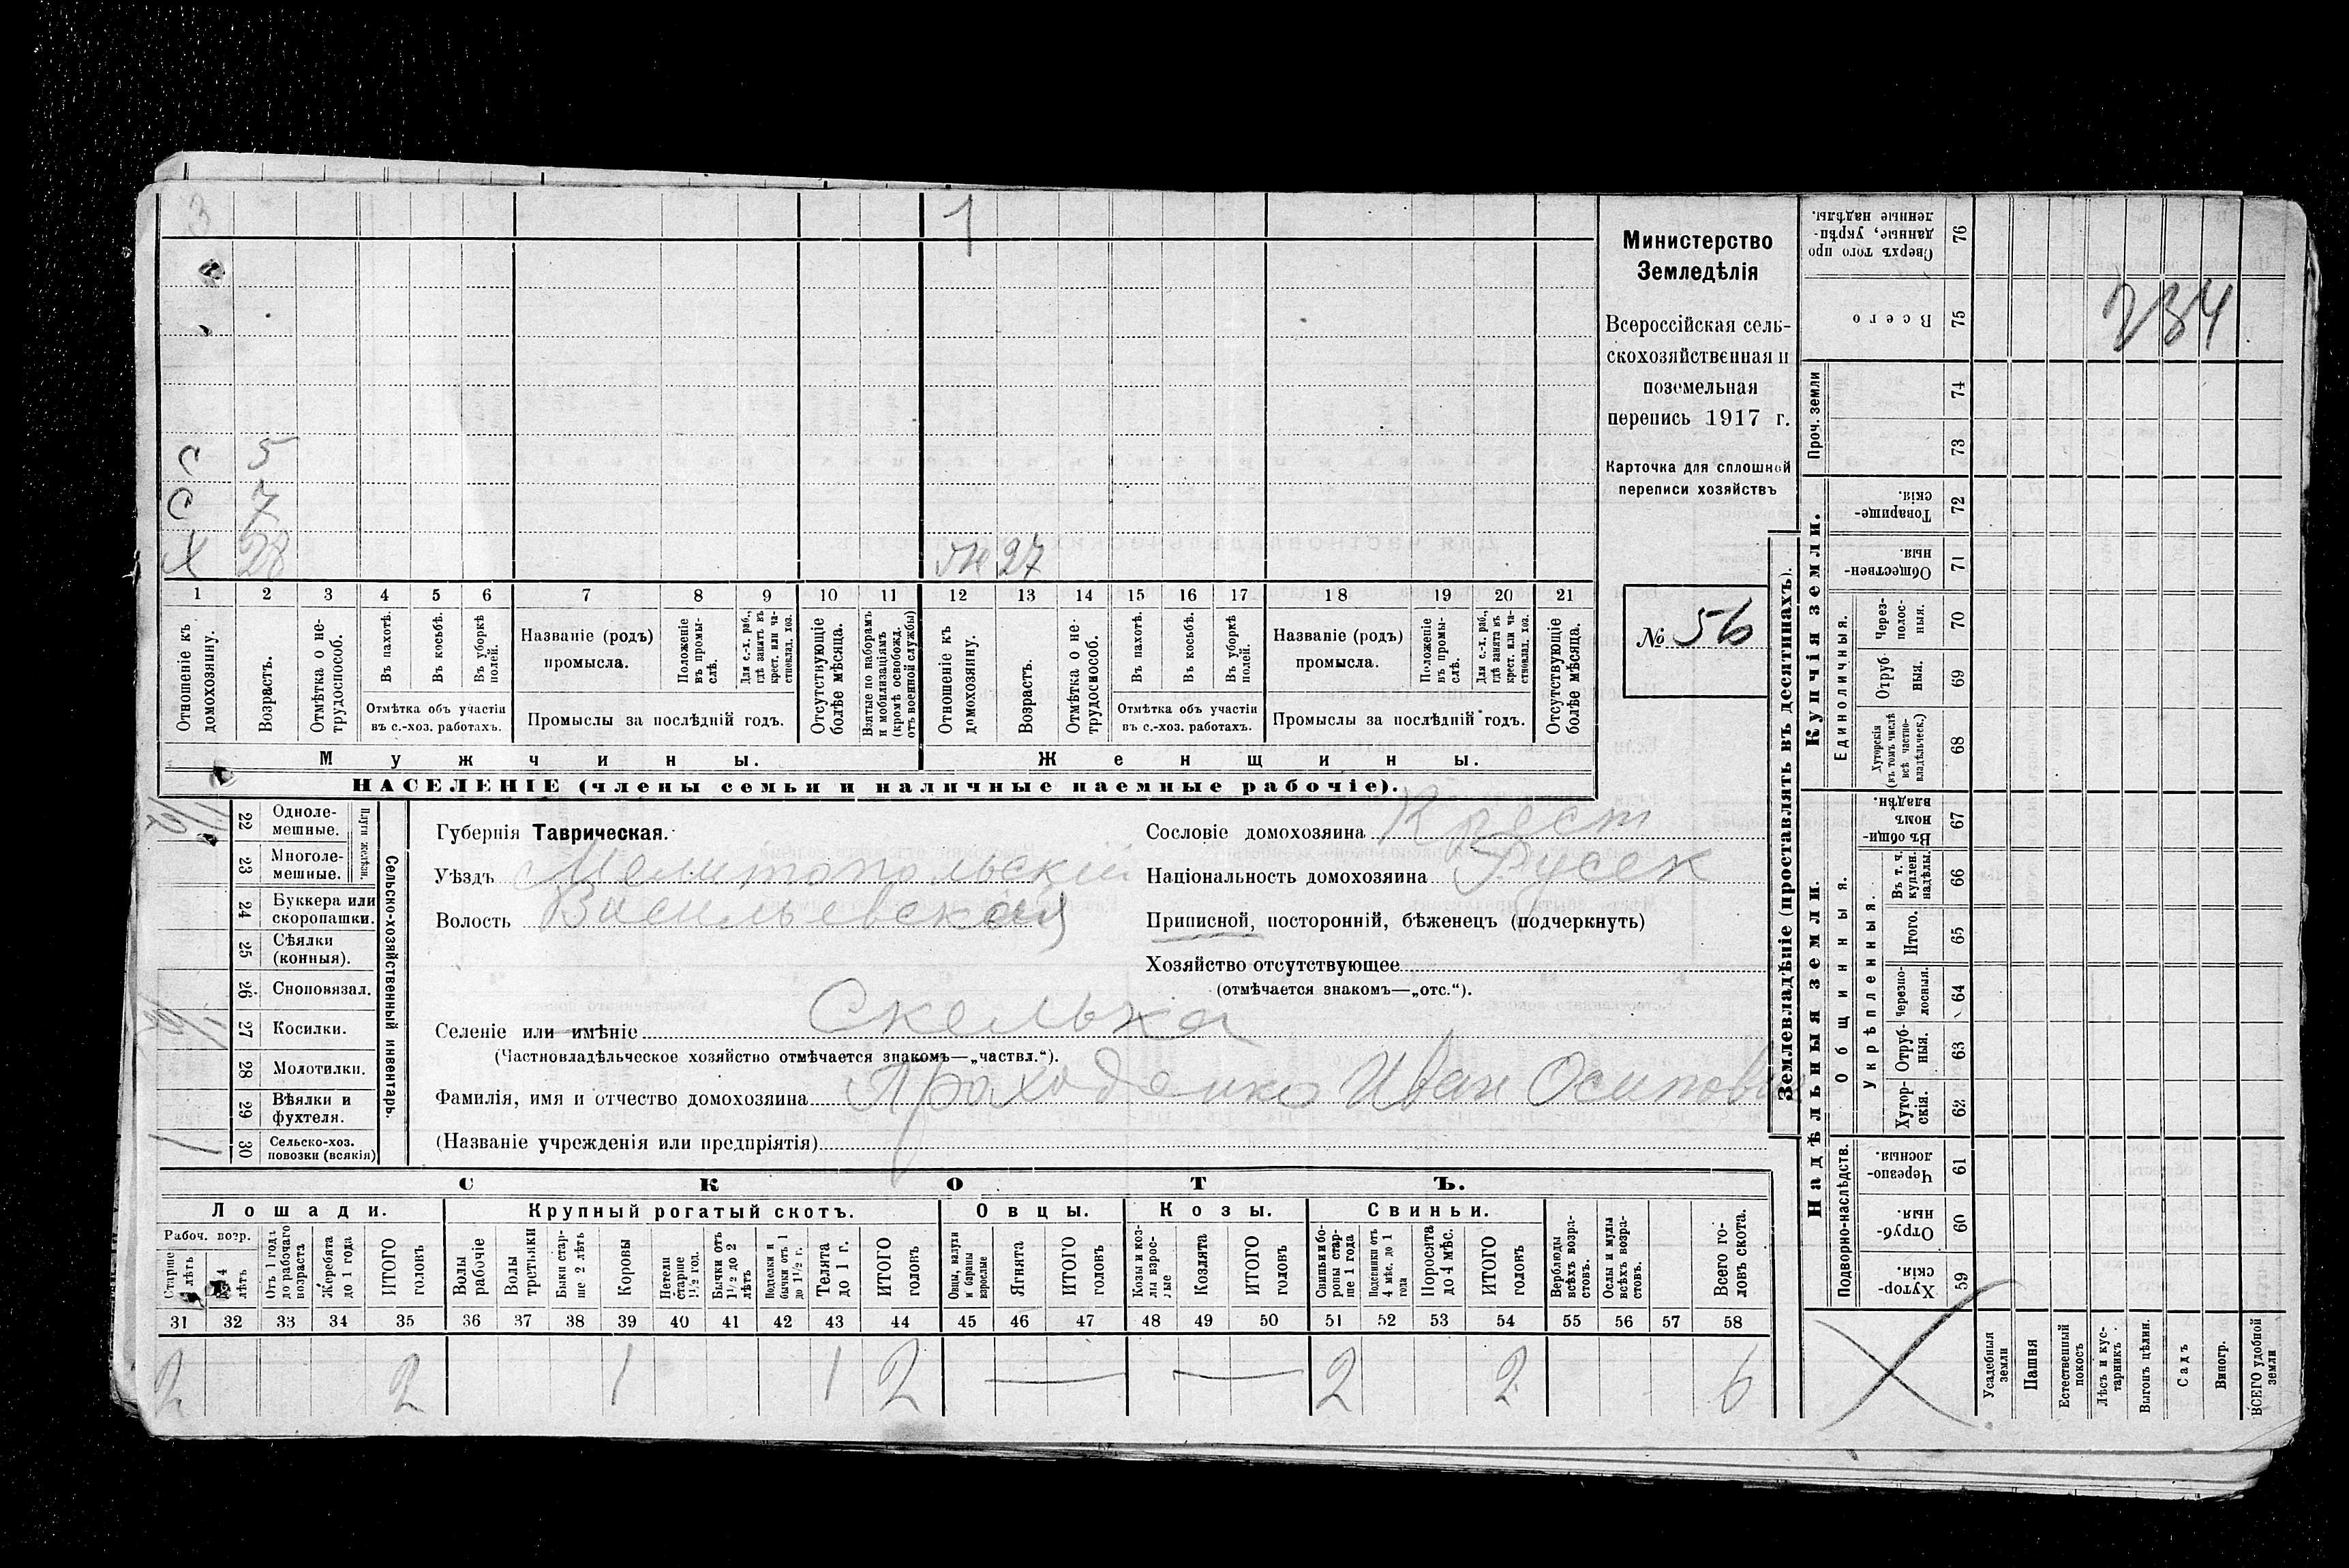 3 1
С 5
С 7
Х 28 Ж 27
1 2 3 4 5 6 7 8 9 10 11 12 13 14 15 16 17 18 19 20 21
Отношеніе къ домохозяину.
Возрастъ.
Отмѣтка о нетрудоспособ.
Въ пахотѣ.
Въ косьбѣ.
Въ уборкѣ полей.
Отмѣтка объ участіи въ с.-хоз. работахъ.
Названіе (родъ) промысла.
Положеніе въ промыслѣ.
Для с.-х. раб., гдѣ занятъ въ крест. или частновлад. хоз.
Промыслы за послѣдній годъ.
Отсутствующіе болѣе мѣсяца.
Взятые по наборамъ и мобилизаціямъ (кромѣ освобожд. отъ военной службы)
Отношеніе къ домохозяину.
Возрастъ.
Отмѣтка о нетрудоспособ.
Въ пахотѣ.
Въ косьбѣ.
Въ уборкѣ полей.
Отмѣтка объ участіи въ с.-хоз. работахъ.
Названіе (родъ) промысла.
Положеніе въ промыслѣ.
Для с.-х. раб., гдѣ занята въ крест. или частновлад. хоз.
Промыслы за послѣдній годъ.
Отсутствующіе болѣе мѣсяца.
Мужчины. Женщины.
НАСЕЛЕНІЕ (члены семьи и наличные наемные рабочіе).
Министерство
Земледѣлія
Всероссійская сель-
скохозяйственная и
поземельная
перепись 1917 г.
Карточка для сплошной
переписи хозяйствъ
№ 56
22 Однолемешные.
23 Многолемешные.
Плуги желѣзн.
24 Буккера или скоропашки.
25 Сѣялки (конныя).
26 Сноповязал.
27 Косилки.
28 Молотилки.
29 Вѣялки и фухтеля.
30 Сельско-хоз. повозки (всякія)
1
Сельско-хозяйственный инвентарь.
Губернія Таврическая.
Уѣздъ Мелитопольскій
Волость Васильевская
Сословіе домохозяина Крест
Національность домохозяина Русск
Приписной, посторонній, бѣженецъ (подчеркнуть)
Хозяйство отсутствующее
(отмѣчается знакомъ—„отс.“).
Селеніе или имѣніе Скелька
(Частновладѣльческое хозяйство отмѣчается знакомъ—„частвл.“).
Фамилія, имя и отчество домохозяина Проходенко Иван Осипович
(Названіе учрежденія или предпріятія)
СКОТЪ.
Лошади. Крупный рогатый скотъ. Овцы. Козы. Свиньи.
Рабоч. возр.
Старше лѣтъ
4 лѣтъ
Отъ 1 года до рабочаго возраста
Жеребята до 1 года
ИТОГО головъ
Волы рабочіе
Волы третьяки
Быки старше 2 лѣтъ
Коровы
Нетели старше 1½ год.
Бычки отъ 1½ до 2 лѣтъ
Подтелки и бычки отъ 1 до 1½ г.
Телята до 1 г.
ИТОГО головъ
Овцы, валухи и бараны взрослые
Ягнята
ИТОГО головъ
Козы и козлы взрослые
Козлята
ИТОГО головъ
Свиньи и боровы старше 1 года
Подсвинки отъ 4 мѣс. до 1 года
Поросята до 4 мѣс.
ИТОГО головъ
Верблюды всѣхъ возрастовъ.
Ослы и мулы всѣхъ возрастовъ.
Всего головъ скота.
31 32 33 34 35 36 37 38 39 40 41 42 43 44 45 46 47 48 49 50 51 52 53 54 55 56 57 58
2 2 1 1 2 — — 2 2 6
Землевладѣніе (проставлять въ десятинахъ).
Надѣльныя земли. Купчія земли.
Сверхъ того проданные, укрѣпленные надѣлы. 76
Всего 75
234
Проч. земли 74 73
Товарищескія. 72
Общественныя. 71
Единоличныя.
Черезполосныя. 70
Отрубныя. 69
Хуторскія (въ томъ числѣ всѣ частновладѣльческ.) 68
Общинныя.
Въ общинномъ владѣн. 67
Укрѣпленныя.
Въ т. ч. куплен. надѣлы. 66
Итого. 65
Черезполосныя. 64
Отрубныя. 63
Хуторскія. 62
Подворно-наслѣдств.
Черезполосныя. 61
Отрубныя. 60
Хуторскія. 59
Усадебныя земли
Пашня
Естественный покосъ
Лѣсъ и кустарникъ
Выгонъ цѣлин.
Садъ
Виногр.
ВСЕГО удобной земли